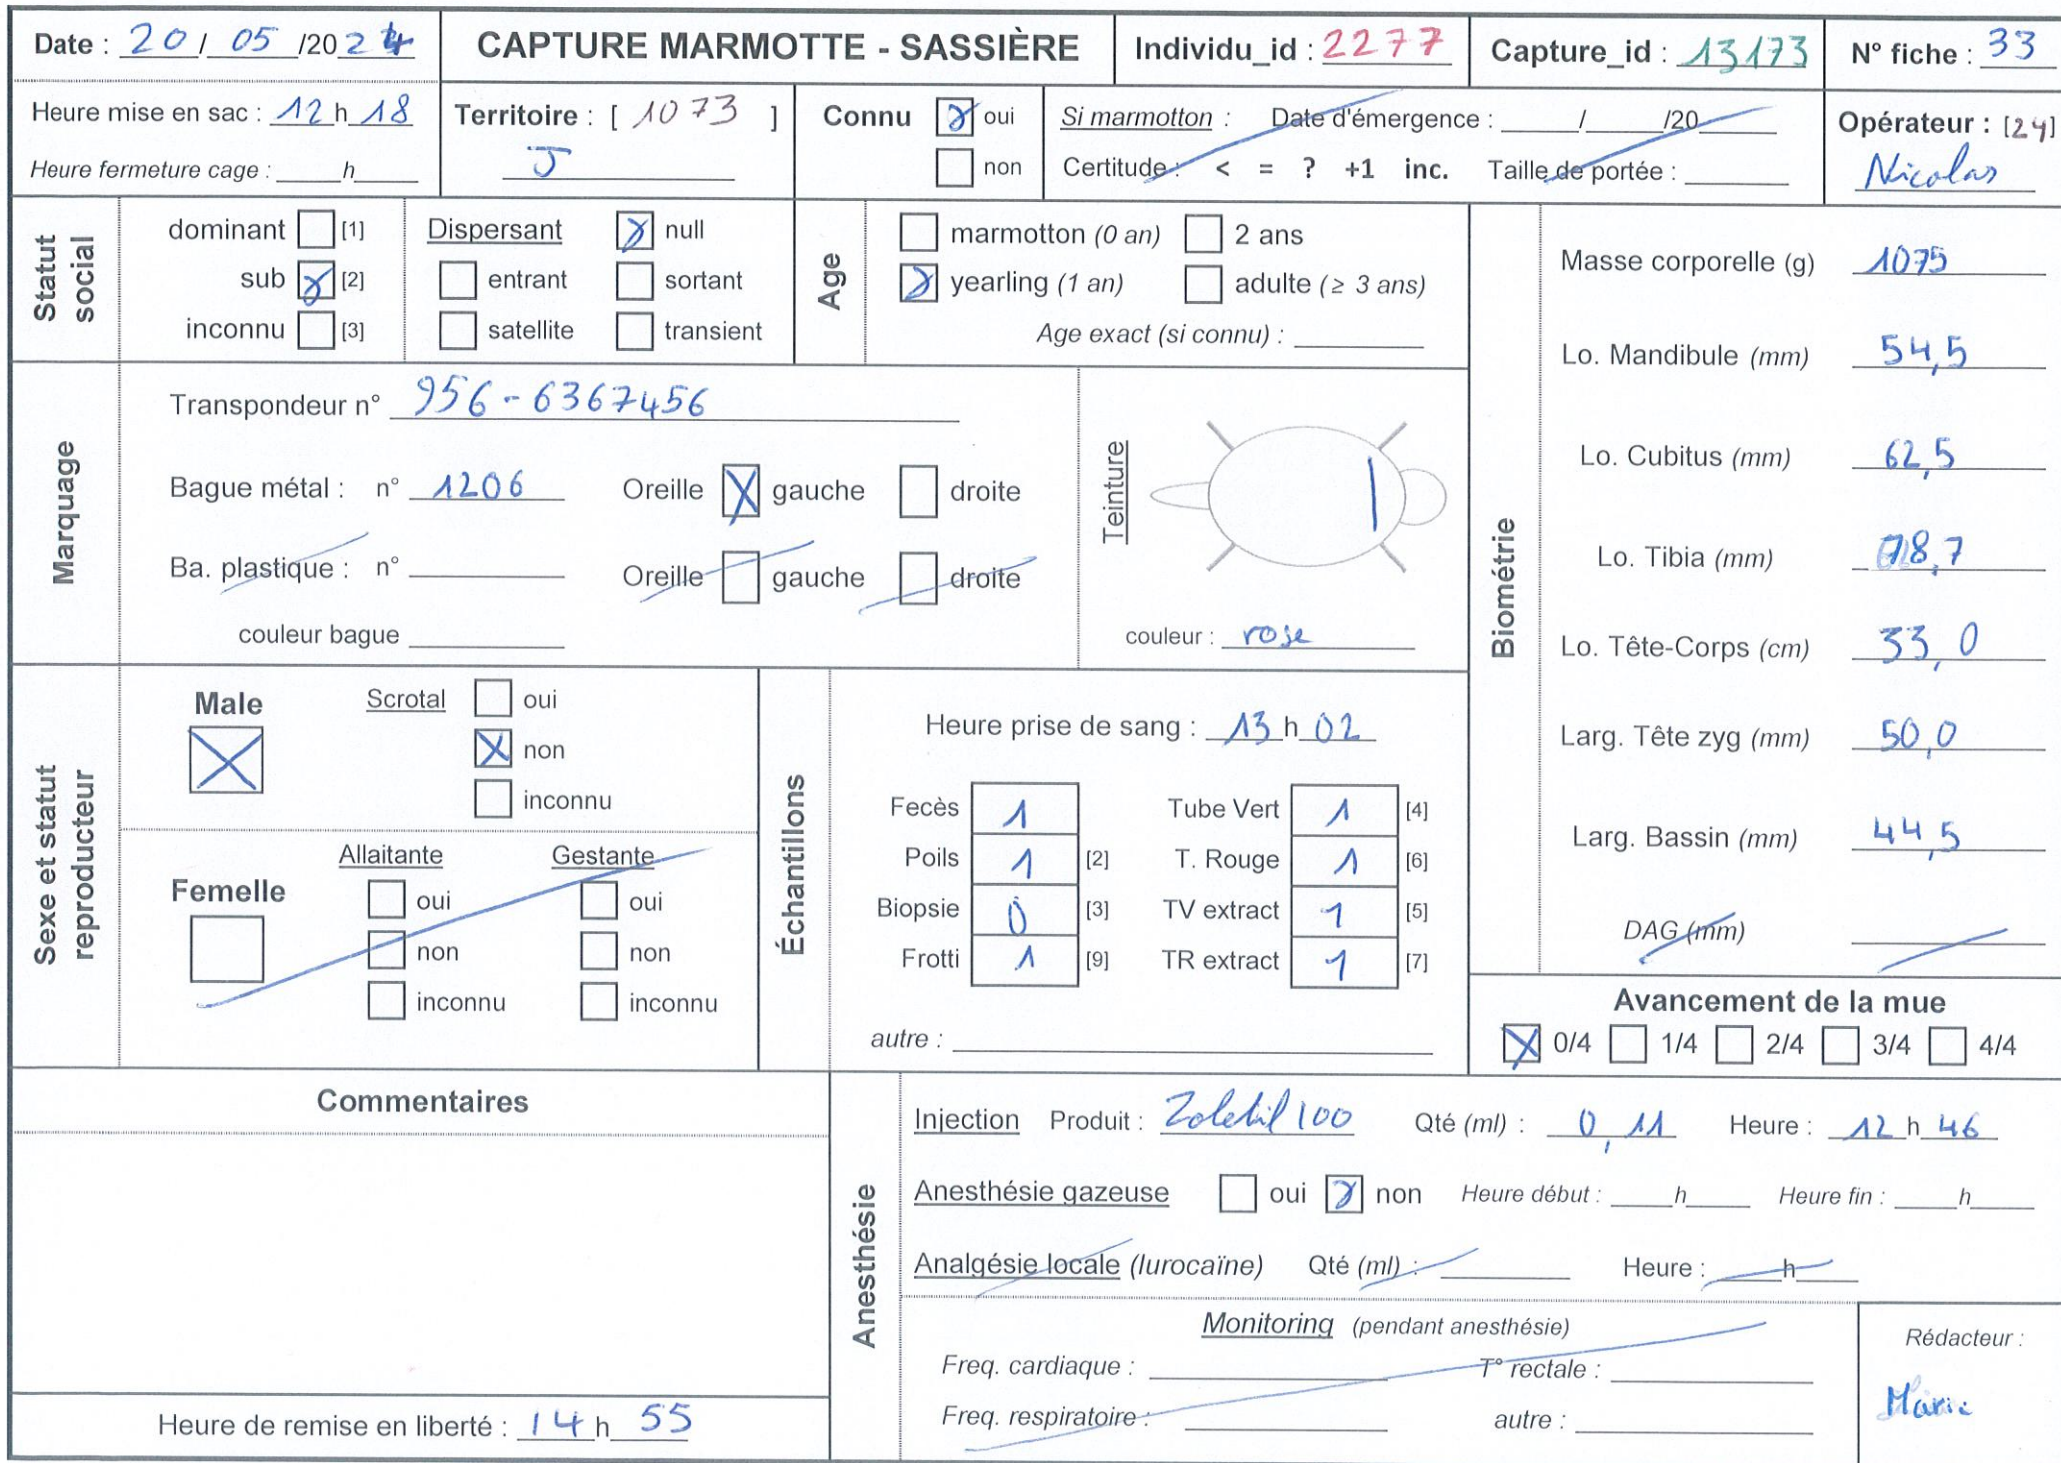 Date : 20 / 05 /2024
CAPTURE MARMOTTE - SASSIÈRE
Individu_id : 2277
Capture_id : 13173
N° fiche : 33
Heure mise en sac : 12 h 18
Heure fermeture cage : h
Territoire : [ 1073 ]
J
Connu oui
non
Si marmotton : Date d'émergence : / /20
Certitude : < = ? +1 inc. Taille de portée :
Opérateur : [24]
Nicolas
Statut social
dominant [1]
sub [2]
inconnu [3]
Dispersant null
entrant sortant
satellite transient
Age
marmotton (0 an) 2 ans
yearling (1 an) adulte (≥ 3 ans)
Age exact (si connu) :
Marquage
Transpondeur n° 956-6367456
Bague métal : n° 1206 Oreille gauche droite
Ba. plastique : n° Oreille gauche droite
couleur bague
Teinture
couleur : rose
Biométrie
Masse corporelle (g) 1075
Lo. Mandibule (mm) 54,5
Lo. Cubitus (mm) 62,5
Lo. Tibia (mm) 78,7
Lo. Tête-Corps (cm) 33,0
Larg. Tête zyg (mm) 50,0
Larg. Bassin (mm) 44,5
DAG (mm)
Sexe et statut reproducteur
Male
Scrotal oui
non
inconnu
Femelle
Allaitante Gestante
oui oui
non non
inconnu inconnu
Échantillons
Heure prise de sang : 13 h 02
Fecès 1 Tube Vert 1 [4]
Poils 1 [2] T. Rouge 1 [6]
Biopsie 0 [3] TV extract 1 [5]
Frotti 1 [9] TR extract 1 [7]
autre :
Avancement de la mue
0/4 1/4 2/4 3/4 4/4
Commentaires
Heure de remise en liberté : 14 h 55
Anesthésie
Injection Produit : Zoletil 100 Qté (ml) : 0,11 Heure : 12 h 46
Anesthésie gazeuse oui non Heure début : h Heure fin : h
Analgésie locale (lurocaïne) Qté (ml) : Heure : h
Monitoring (pendant anesthésie)
Freq. cardiaque : T° rectale :
Freq. respiratoire : autre :
Rédacteur :
Marie